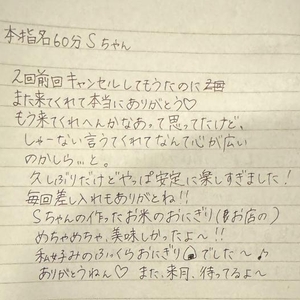 本指名60分 Sちゃん
2回前回キャンセルしてもうたのに
また来てくれて本当にありがとう♡
もう来てくれへんかなあって思ってたけど、
しゃーない言うてくれてなんて心が広い
のかしら…と。
久しぶりだけどやっぱ安定に楽しすぎました!
毎回差し入れもありがとね!!
Sちゃんの作ったお米のおにぎり(お店の)
めちゃめちゃ、美味しかったよ〜!!
私好みのふっくらおにぎり🍙でした〜♪
ありがとうねん♡ また、来月、待ってるよ〜